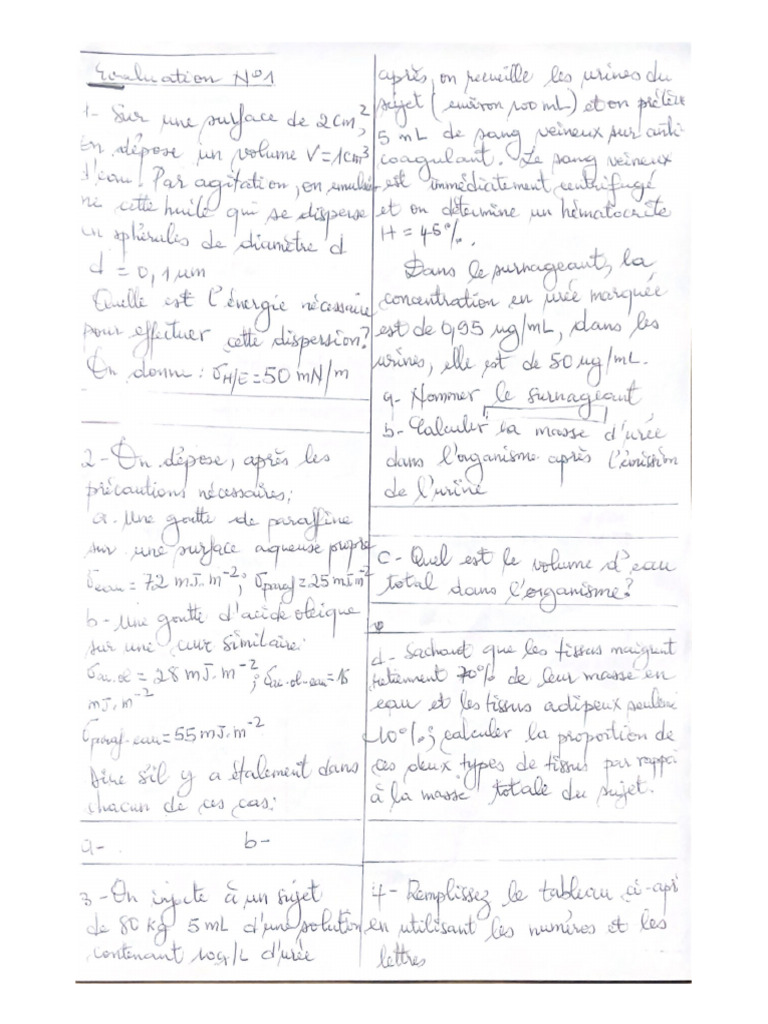 Evaluation N°1
1- Sur une surface de 2cm²,
On dépose un volume V=1cm³
d'eau. Par agitation, on emulsio
ne cette huile qui se disperse
en sphérules de diamètre d
d = 0,1 um
Quelle est l'énergie nécessaire
pour effectuer cette dispersion?
On donne : σH/E = 50 mN/m
2- On dépose, après les
précautions nécessaires;
a. Une goutte de paraffine
sur une surface aqueuse propre
σeau = 72 mJ.m⁻²; σparaf = 25 mJ m⁻²
b- Une goutte d'acide oleique
sur une similaire:
σac.ol = 28 mJ.m⁻²; σac-ol-eau = 15
mJ.m⁻²
σparaf-eau = 55 mJ.m⁻²
Dire s'il y a étalement dans
chacun de ces cas:
a- b-
3- On injecte à un sujet
de 80 kg 5 mL d'une solution
contenant 10g/L d'urée
après, on recueille les urines du
sujet (environ 100 mL) et on prélève
5 mL de sang veineux sur anti
coagulant. Le sang veineux
est immédiatement centrifugé
et on détermine un hématocrite
H = 45%.
Dans le surnageant, la
concentration en urée marquée
est de 0,95 ug/mL, dans les
urines, elle est de 50 ug/mL.
a- Nommer le surnageant
b- Calculer la masse d'urée
dans l'organisme après l'émission
de l'urine
c- Quel est le volume d'eau
total dans l'organisme?
d- Sachant que les tissus maigres
70% de leur masse en
eau et les tissus adipeux seuleme
10%; calculer la proportion de
ces deux types de tissus par rappo
à la masse totale du sujet.
4- Remplissez le tableau ci-apr
en utilisant les numéros et les
lettres